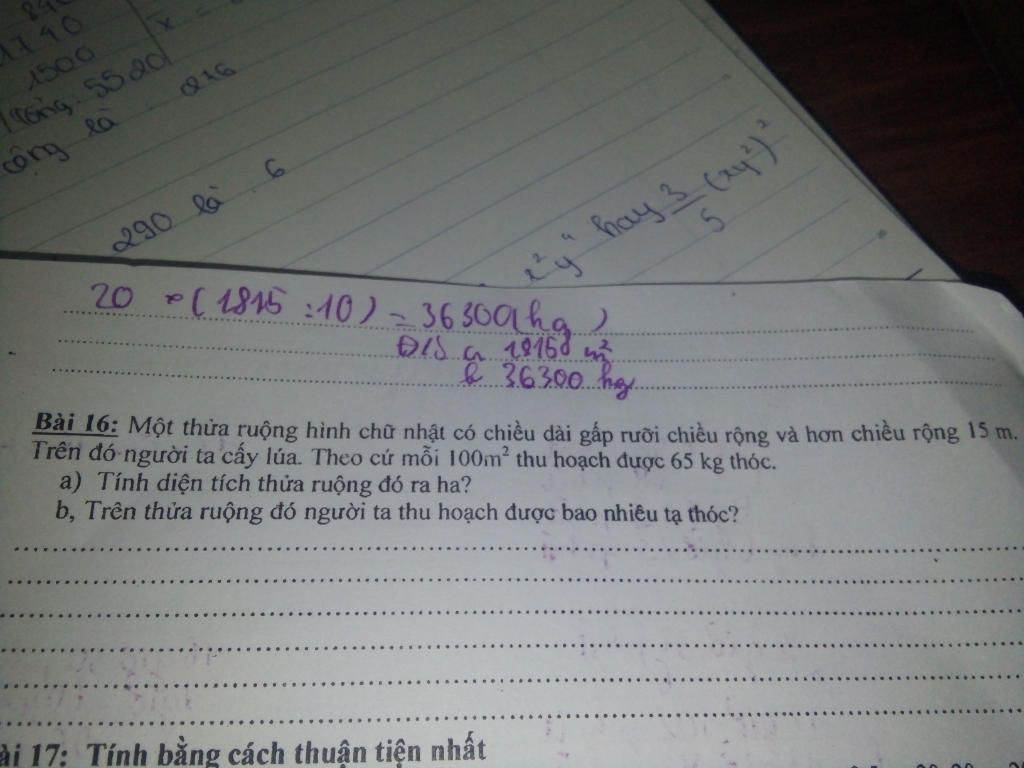 1740
1500
Tổng 5520
x̄ =
công là 216
290 là 6
x²y⁴ hay 3/5 (xy²)²
20 × (1815 : 10) = 36300(kg)
Đ/S a 18150 m²
b 36300 kg
Bài 16: Một thửa ruộng hình chữ nhật có chiều dài gấp rưỡi chiều rộng và hơn chiều rộng 15 m.
Trên đó người ta cấy lúa. Theo cứ mỗi 100m² thu hoạch được 65 kg thóc.
a) Tính diện tích thửa ruộng đó ra ha?
b, Trên thửa ruộng đó người ta thu hoạch được bao nhiêu tạ thóc?
ài 17: Tính bằng cách thuận tiện nhất